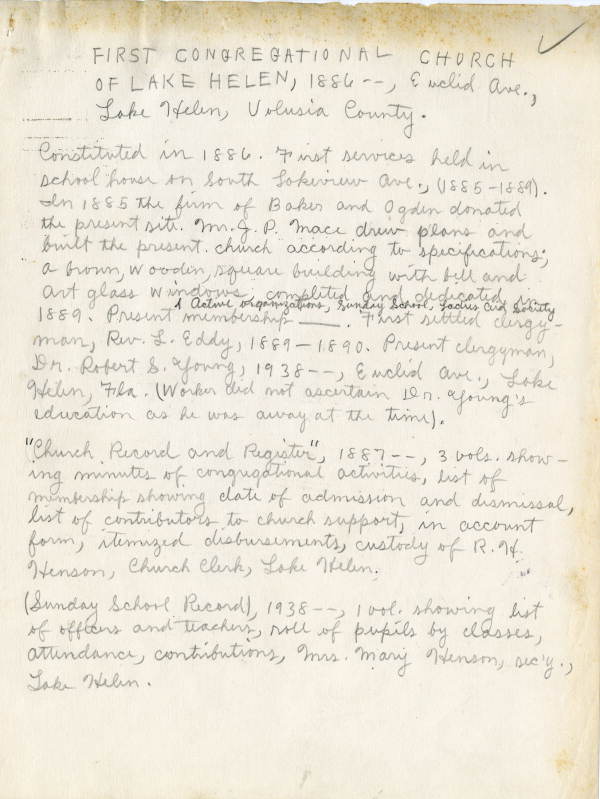 FIRST CONGREGATIONAL CHURCH
OF LAKE HELEN, 1886--, Euclid Ave.,
Lake Helen, Volusia County.
Constituted in 1886. First services held in
school house on South Lakeview Ave., (1885-1889).
In 1885 the firm of Baker and Ogden donated
the present site. Mr. J. P. Mace drew plans and
built the present church according to specifications;
a brown, wooden, square building with bell and
art glass windows, completed and dedicated in
4 Active organizations, Sunday School, Ladies Aid Society
1889. Present membership ___. First settled clergy-
man, Rev. L. Eddy, 1889-1890. Present clergyman,
Dr. Robert S. Young, 1938--, Euclid Ave., Lake
Helen, Fla. (Worker did not ascertain Dr. Young's
education as he was away at the time).
"Church Record and Register", 1887--, 3 vols. show-
ing minutes of congregational activities, list of
membership showing date of admission and dismissal,
list of contributors to church support, in account
form, itemized disbursements, custody of R. H.
Henson, Church Clerk, Lake Helen.
(Sunday School Record), 1938--, 1 vol. showing list
of officers and teachers, roll of pupils by classes,
attendance, contributions, Mrs. Mary Henson, sec'y.,
Lake Helen.